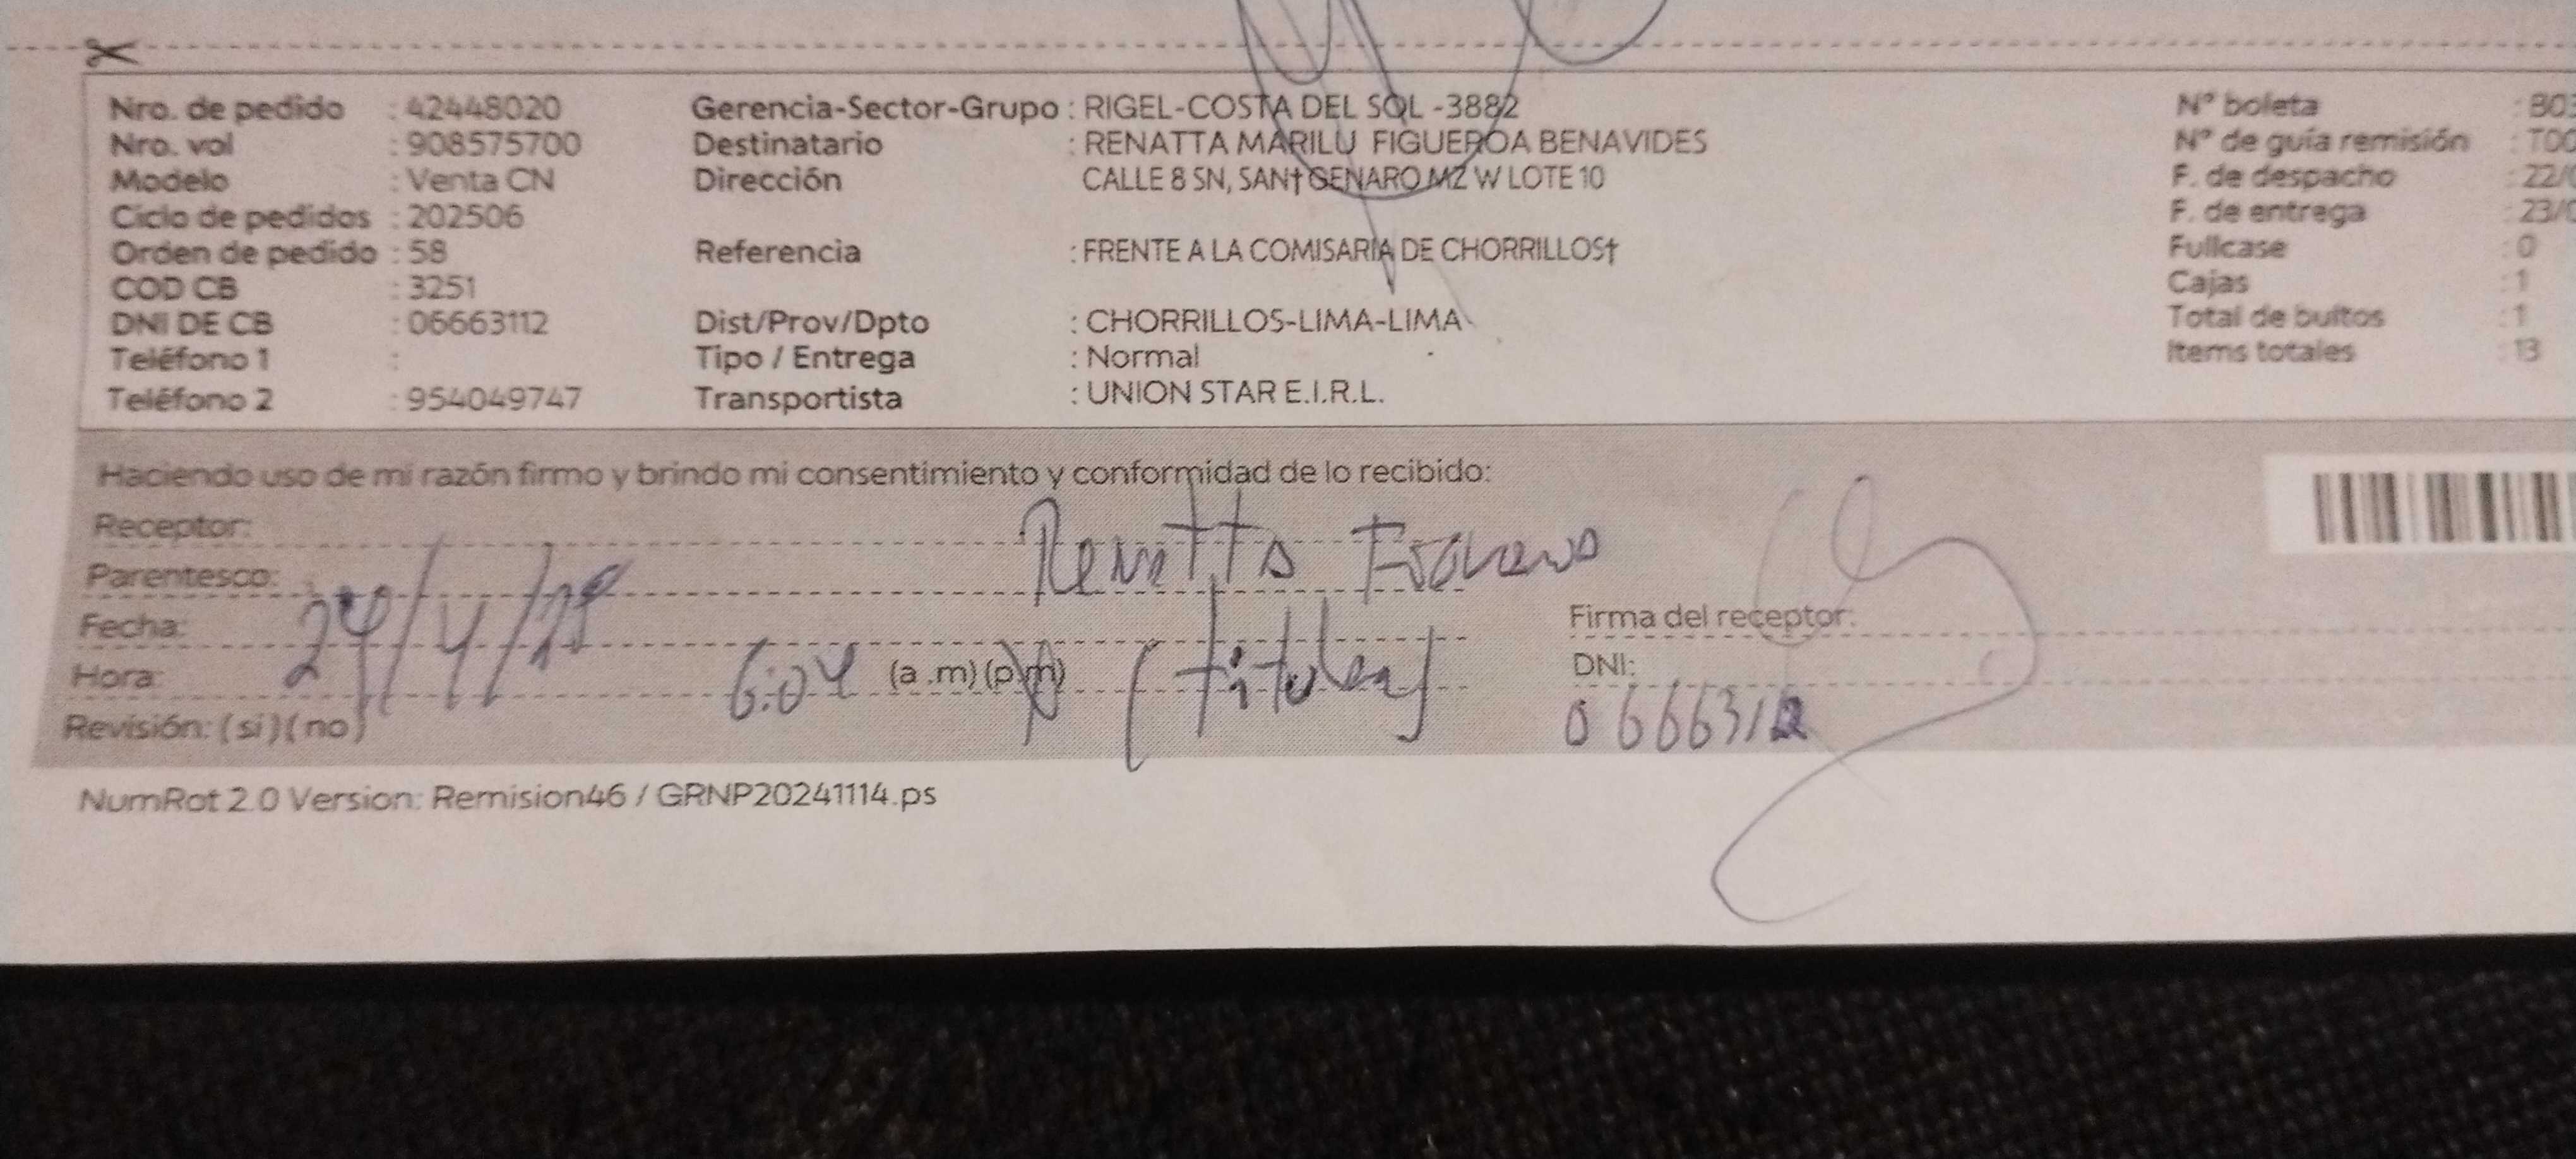 Nro. de pedido : 42448020
Nro. vol : 908575700
Modelo : Venta CN
Ciclo de pedidos : 202506
Orden de pedido : 58
COD CB : 3251
DNI DE CB : 06663112
Teléfono 1 :
Teléfono 2 : 954049747
Gerencia-Sector-Grupo : RIGEL-COSTA DEL SOL -3882
Destinatario : RENATTA MARILU FIGUEROA BENAVIDES
Dirección CALLE 8 SN, SAN† GENARO MZ W LOTE 10
Referencia : FRENTE A LA COMISARIA DE CHORRILLOS†
Dist/Prov/Dpto : CHORRILLOS-LIMA-LIMA
Tipo / Entrega : Normal
Transportista : UNION STAR E.I.R.L.
N° boleta : B03
N° de guía remisión : T00
F. de despacho : 22/0
F. de entrega : 23/0
Fullcase : 0
Cajas : 1
Total de bultos : 1
Items totales : 13
Haciendo uso de mi razón firmo y brindo mi consentimiento y conformidad de lo recibido:
Receptor: Renatta
Parentesco: (titular)
Fecha:
Hora: 6:04 (a .m) (p.m)
Revisión: ( si ) ( no )
Firma del receptor:
DNI:
NumRot 2.0 Version: Remision46 / GRNP20241114.ps